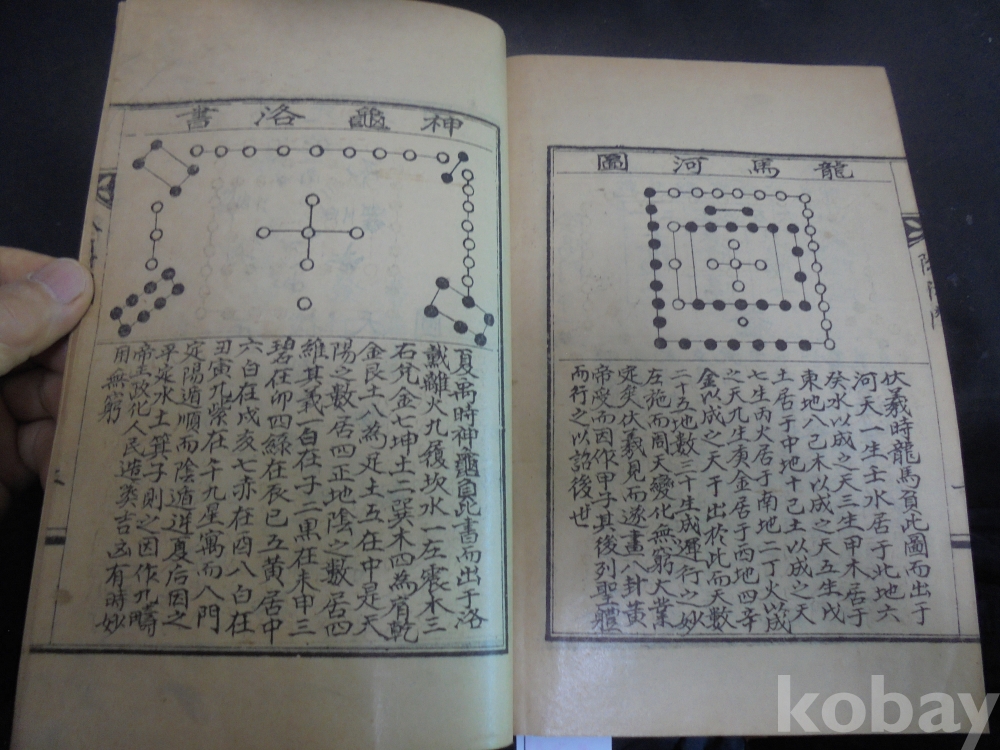 龍馬河圖
伏羲時龍馬負此圖而出于
河天一生壬水居于北地六
癸水以成之天三生甲木居于
東地八己木以成之天五生戊
土居于中地十己土以成之天
七生丙火居于南地二丁火以成
之天九生庚金居于西地四辛
金以成之天干出於此而天數
二十五地數三十生成運行之妙
左旋而周天變化無窮大業
定矣伏羲見而遂畫八卦黃
帝受而因作甲子其後列聖體
而行之以詔後世
神龜洛書
夏禹時神龜負此書而出于洛
戴離火九履坎水一左震木三
右兌金七坤土二巽木四為肩乾
金艮土八為足土五在中是天
陽之數居四正地陰之數居四
維其義一白在子二黑在未申三
碧在卯四綠在辰巳五黃居中
六白在戌亥七赤在酉八白在
丑寅九紫在午九星寓而八門
定陽遁順而陰遁逆夏后因之
平定水土箕子則之因作九疇
帝王政化人民造葬吉凶有時妙
用無窮
kobay